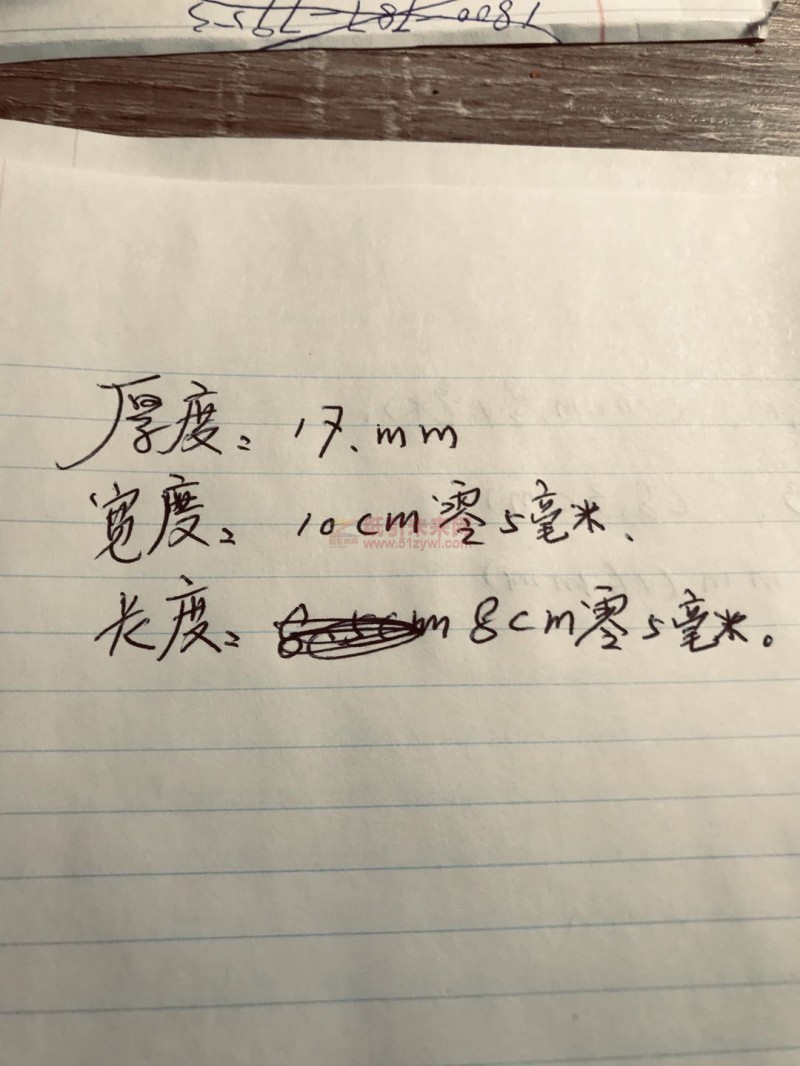 厚度：17.mm
宽度：10cm零5毫米、
www.51zywl.com
长度：8cm零5毫米。